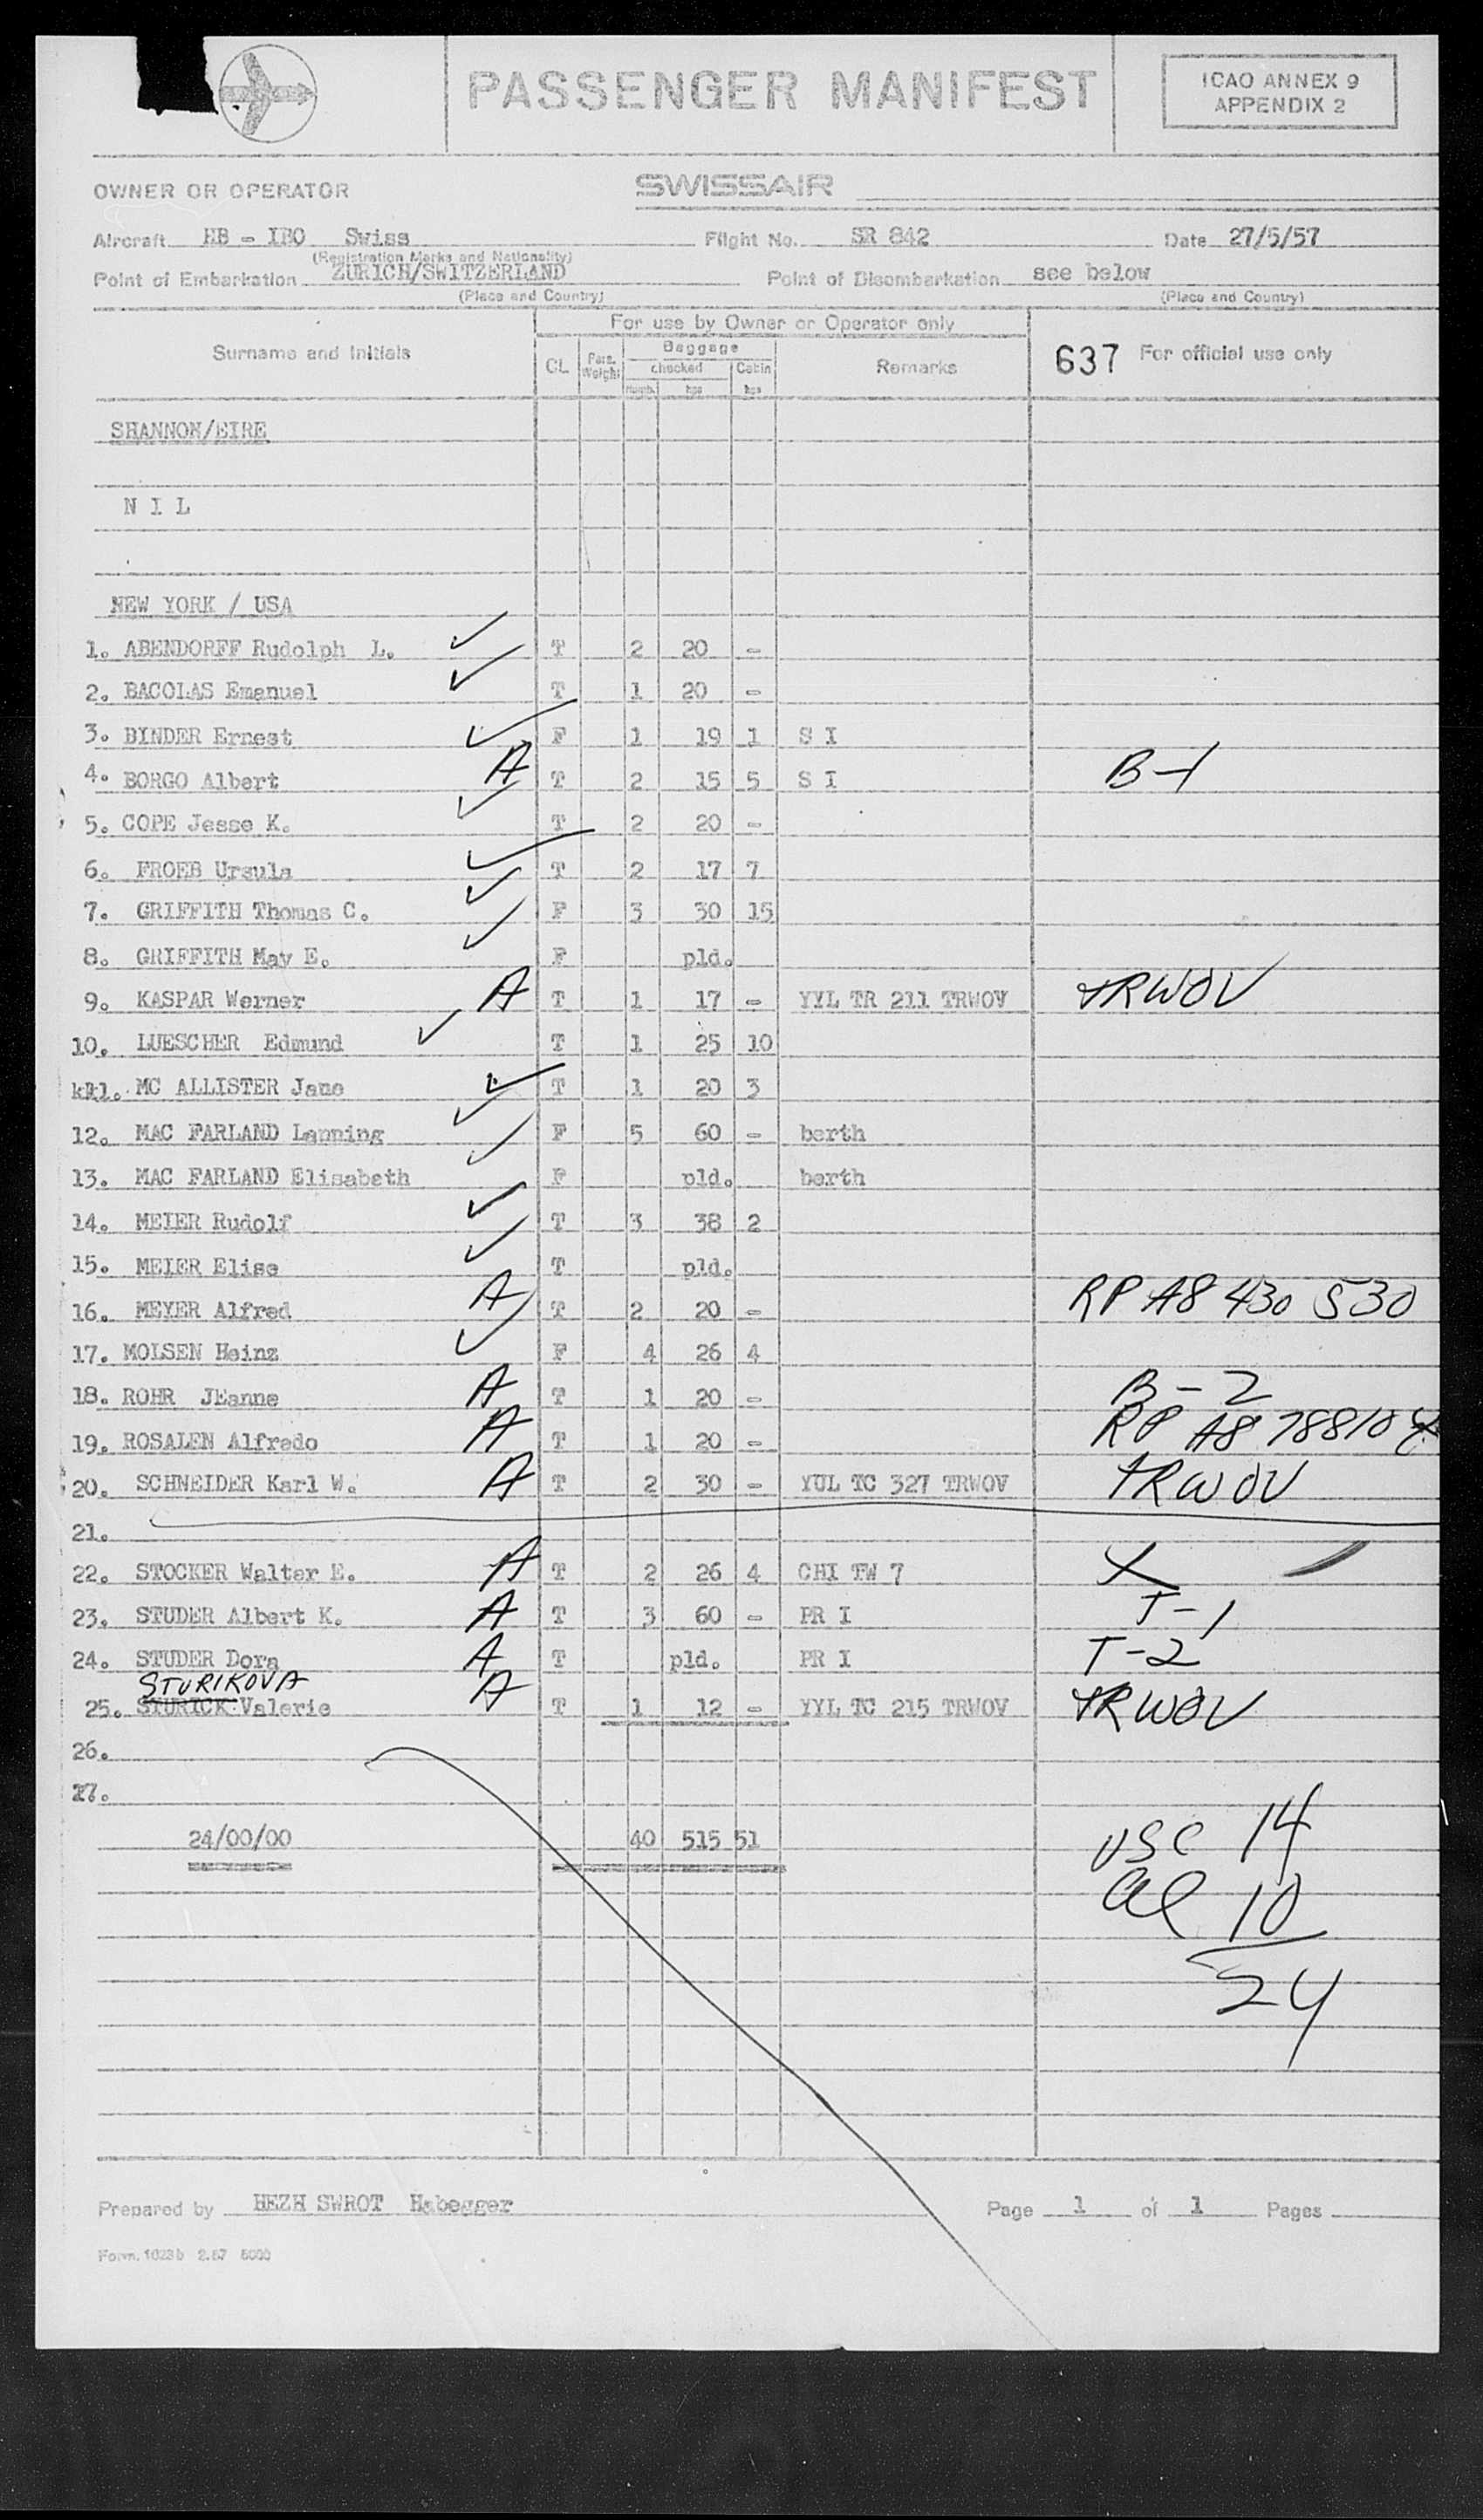 PASSENGER MANIFEST
ICAO ANNEX 9
APPENDIX 2
OWNER OR OPERATOR SWISSAIR
Aircraft HB - IBO Swiss Flight No. SR 842 Date 27/5/57
(Registration Marks and Nationality)
Point of Embarkation ZURICH/SWITZERLAND Point of Disembarkation see below
(Place and Country) (Place and Country)
For use by Owner or Operator only
Surname and Initials CL Pass. Weight Baggage Remarks 637 For official use only
checked Cabin
Numb. kgs kgs
SHANNON/EIRE
N I L
NEW YORK / USA
1. ABENDORFF Rudolph L. ✓ T 2 20 -
2. BACOLAS Emanuel ✓ T 1 20 -
3. BINDER Ernest ✓ F 1 19 1 S I
4. BORGO Albert A T 2 15 5 S I B-1
5. COPE Jesse K. ✓ T 2 20 -
6. FROEB Ursula ✓ T 2 17 7
7. GRIFFITH Thomas C. ✓ F 3 30 15
8. GRIFFITH May E. ✓ F pld.
9. KASPAR Werner A T 1 17 - YYL TR 211 TRWOV TRWOV
10. LUESCHER Edmund ✓ T 1 25 10
11. MC ALLISTER Jane ✓ T 1 20 3
12. MAC FARLAND Lanning ✓ F 5 60 - berth
13. MAC FARLAND Elisabeth ✓ F pld. berth
14. MEIER Rudolf ✓ T 3 38 2
15. MEIER Elise ✓ T pld.
16. MEYER Alfred A T 2 20 - RP A8 430 530
17. MOLSEN Heinz ✓ F 4 26 4
18. ROHR JEanne A T 1 20 - B-2
19. ROSALEN Alfredo A T 1 20 - RP A8 788108
20. SCHNEIDER Karl W. A T 2 30 - YUL TC 327 TRWOV TRWOV
21.
22. STOCKER Walter E. A T 2 26 4 CHI TW 7 X
23. STUDER Albert K. A T 3 60 - PR I T-1
24. STUDER Dora A T pld. PR I T-2
STURIKOVA
25. STURICK Valerie A T 1 12 - YYL TC 215 TRWOV TRWOV
26.
27.
24/00/00 40 515 51 USC 14
al 10
24
Prepared by HEZH SWROT Habegger Page 1 of 1 Pages
Form. 1023b 2.57 5000